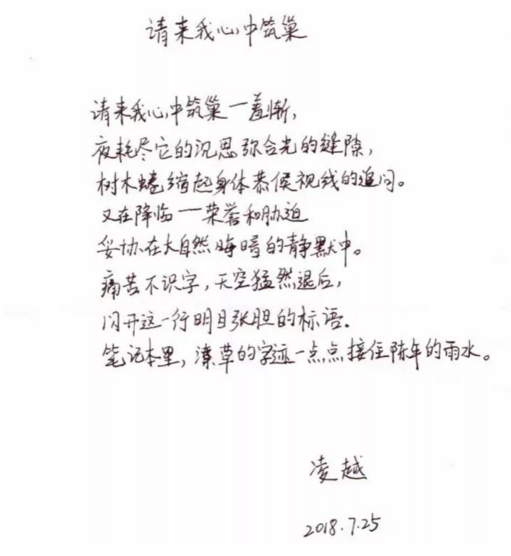 请来我心中筑巢
请来我心中筑巢—羞惭,
夜耗尽它的沉思弥合光的缝隙,
树木蜷缩起身体恭候视线的追问。
又在降临—荣誉和胁迫
妥协在大自然晦暗的静默中。
痛苦不识字,天空猛然退后,
闪开这一行明目张胆的标语.
笔记本里,潦草的字迹一点点接住陈年的雨水。
凌越
2018.7.25